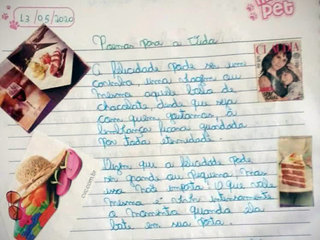 13/05/2020
Pet
Poemas para a Vida
A felicidade pode ser um
carinho uma viagem ou
mesmo aquele bolo de
chocolate, desde que seja
com quem gostamos, a
lembrança ficará guardada
por toda eternidade.
Dizem que a felicidade pode
ser grande ou pequena mas
isso não importa! O que vale
mesmo é intensamente
o momento quando ela
bate em sua porta.